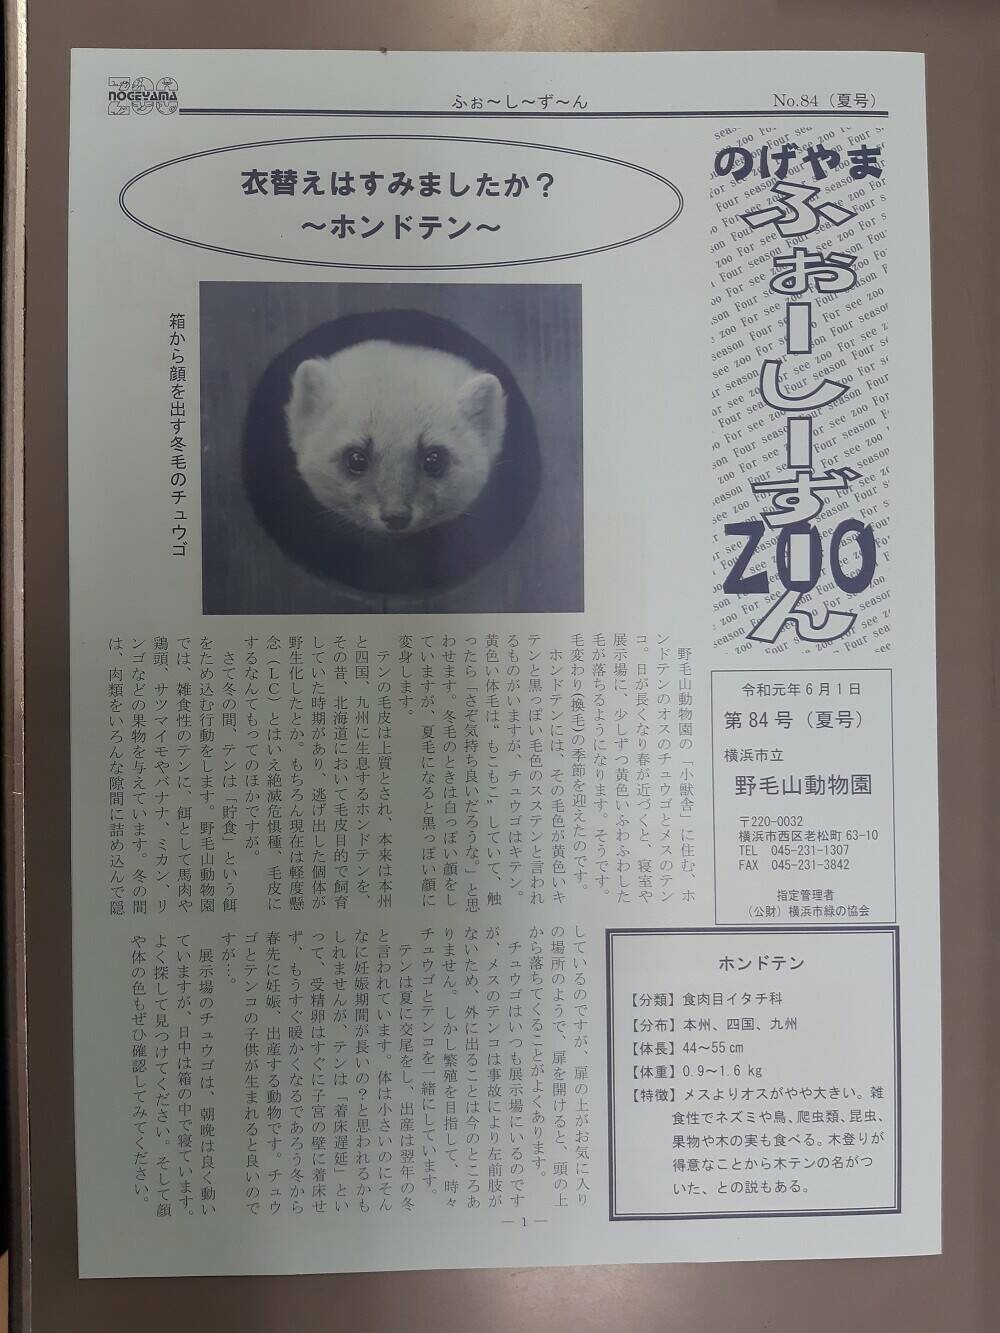 NOGEYAMA
ふぉ～し～ず～ん
No.84（夏号）
のげやま
ふぉーしーずーん
ZOO
衣替えはすみましたか？
～ホンドテン～
箱から顔を出す冬毛のチュウゴ
令和元年６月１日
第84号（夏号）
横浜市立
野毛山動物園
〒220-0032
横浜市西区老松町63-10
TEL 045-231-1307
FAX 045-231-3842
指定管理者
（公財）横浜市緑の協会
野毛山動物園の「小獣舎」に住む、ホ
ンドテンのオスのチュウゴとメスのテン
コ。日が長くなり春が近づくと、寝室や
展示場に、少しずつ黄色いふわふわした
毛が落ちるようになります。そうです。
毛変わり（換毛）の季節を迎えたのです。
ホンドテンには、その毛色が黄色いキ
テンと黒っぽい毛色のスステンと言われ
るものがいますが、チュウゴはキテン。
黄色い体毛は“もこもこ”していて、触
ったら「さぞ気持ち良いだろうな。」と思
わせます。冬毛のときは白っぽい顔をし
ていますが、夏毛になると黒っぽい顔に
変身します。
テンの毛皮は上質とされ、本来は本州
と四国、九州に生息するホンドテンを、
その昔、北海道において毛皮目的で飼育
していた時期があり、逃げ出した個体が
野生化したとか。もちろん現在は軽度懸
念（LC）とはいえ絶滅危惧種、毛皮に
するなんてもってのほかですが。
さて冬の間、テンは「貯食」という餌
をため込む行動をします。野毛山動物園
では、雑食性のテンに、餌として馬肉や
鶏頭、サツマイモやバナナ、ミカン、リ
ンゴなどの果物を与えています。冬の間
は、肉類をいろんな隙間に詰め込んで隠
しているのですが、扉の上がお気に入り
の場所のようで、扉を開けると、頭の上
から落ちてくることがよくあります。
チュウゴはいつも展示場にいるのです
が、メスのテンコは事故により左前肢が
ないため、外に出ることは今のところあ
りません。しかし繁殖を目指して、時々
チュウゴとテンコを一緒にしています。
テンは夏に交尾をし、出産は翌年の冬
と言われています。体は小さいのにそん
なに妊娠期間が長いの？と思われるかも
しれませんが、テンは「着床遅延」とい
って、受精卵はすぐに子宮の壁に着床せ
ず、もうすぐ暖かくなるであろう冬から
春先に妊娠、出産する動物です。チュウ
ゴとテンコの子供が生まれると良いので
すが…。
展示場のチュウゴは、朝晩は良く動い
ていますが、日中は箱の中で寝ています。
よく探して見つけてください。そして顔
や体の色もぜひ確認してみてください。
ホンドテン
【分類】食肉目イタチ科
【分布】本州、四国、九州
【体長】44～55㎝
【体重】0.9～1.6㎏
【特徴】メスよりオスがやや大きい。雑
食性でネズミや鳥、爬虫類、昆虫、
果物や木の実も食べる。木登りが
得意なことから木テンの名がつ
いた、との説もある。
― 1 ―